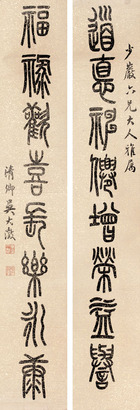 少巖六兄大人雅屬
道悳神僊增榮益譽
福祿歡喜長樂永康
清卿吳大澂